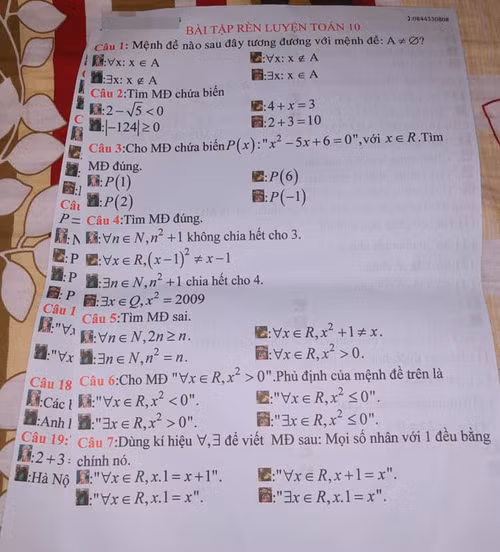 2-0844330808
BÀI TẬP RÈN LUYỆN TOÁN 10
Câu 1: Mệnh đề nào sau đây tương đương với mệnh đề: A ≠ ∅?
:∀x: x ∈ A :∀x: x ∉ A
:∃x: x ∉ A :∃x: x ∈ A
Câu 2:Tìm MĐ chứa biến
:2 − √5 < 0 :4 + x = 3
:|−124| ≥ 0 :2 + 3 = 10
Câu 3:Cho MĐ chứa biến P(x):"x² − 5x + 6 = 0",với x ∈ R.Tìm
MĐ đúng.
:P(1) :P(6)
:P(2) :P(−1)
P = Câu 4:Tìm MĐ đúng.
:N :∀n ∈ N, n² + 1 không chia hết cho 3.
:P :∀x ∈ R, (x − 1)² ≠ x − 1
:P :∃n ∈ N, n² + 1 chia hết cho 4.
:P :∃x ∈ Q, x² = 2009
Câu 1 Câu 5:Tìm MĐ sai.
:"∀x :∀n ∈ N, 2n ≥ n. :∀x ∈ R, x² + 1 ≠ x.
:"∀x :∃n ∈ N, n² = n. :∀x ∈ R, x² > 0.
Câu 18 Câu 6:Cho MĐ "∀x ∈ R, x² > 0".Phủ định của mệnh đề trên là
:Các :"∀x ∈ R, x² < 0". :"∀x ∈ R, x² ≤ 0".
:Anh :"∃x ∈ R, x² > 0". :"∃x ∈ R, x² ≤ 0".
Câu 19: Câu 7:Dùng kí hiệu ∀,∃ để viết MĐ sau: Mọi số nhân với 1 đều bằng
:2 + 3 chính nó.
:Hà Nộ :"∀x ∈ R, x.1 = x + 1". :"∀x ∈ R, x + 1 = x".
:"∀x ∈ R, x.1 = x". :"∃x ∈ R, x.1 = x".